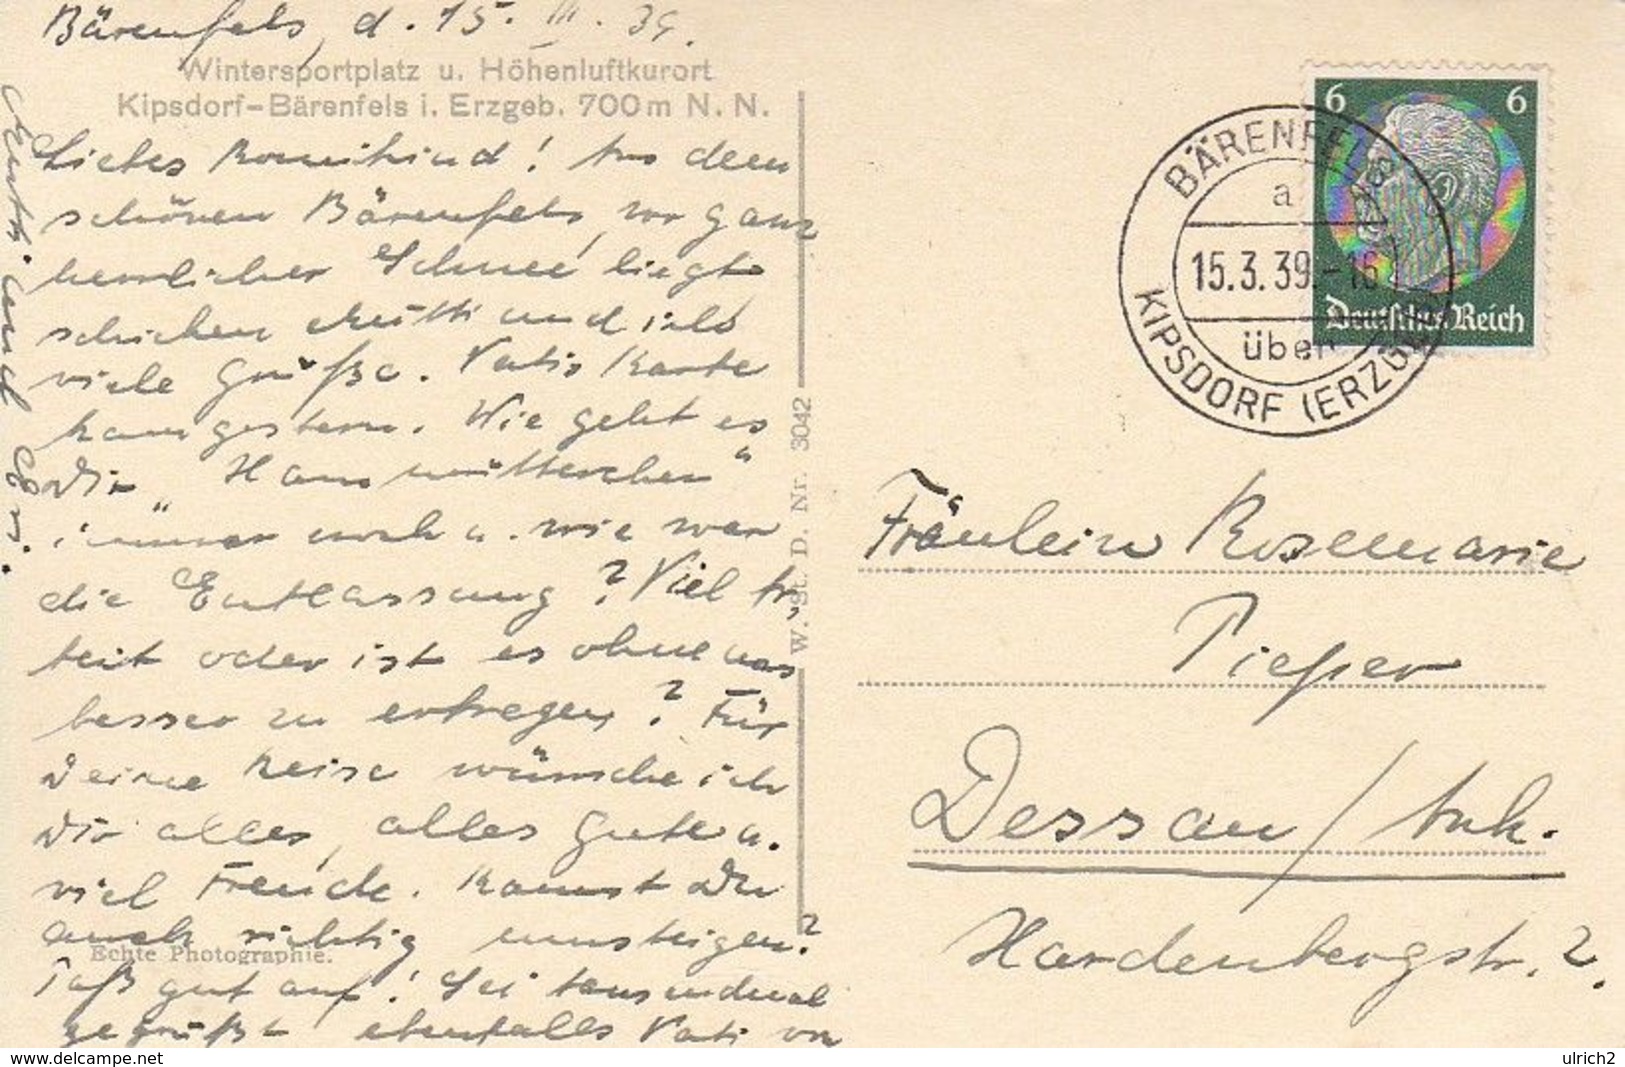 Bärenfels, d. 15. III. 39.
Wintersportplatz u. Höhenluftkurort
Kipsdorf-Bärenfels i. Erzgeb. 700m N. N.
Liebes Romikind! Aus dem
schönen Bärenfels, wo ganz
herrlicher Schnee liegt
schicken Mutti und ich
viele Grüße. Vatis Karte
kam gestern. Wie geht es
Dir „Hausmütterchen"
immer noch u. wie war
die Entlassung? Viel Ar-
beit oder ist es ohne was
besser zu ertragen? Für
Deine Reise wünsche ich
Dir alles, alles Gute u.
viel Freude. Kannst Du
auch richtig umsteigen?
Echte Photographie.
Paß gut auf! Sei tausendmal
gegrüßt ebenfalls Vati von
Mutti und
W. St. D. Nr. 3042
6 6
Deutsches Reich
BÄRENFELS
a
15.3.39.-16
über
KIPSDORF (ERZGEB)
Fräulein Rosemarie
Pieper
Dessau / Anh.
Hardenbergstr. 2.
www.delcampe.net
ulrich2